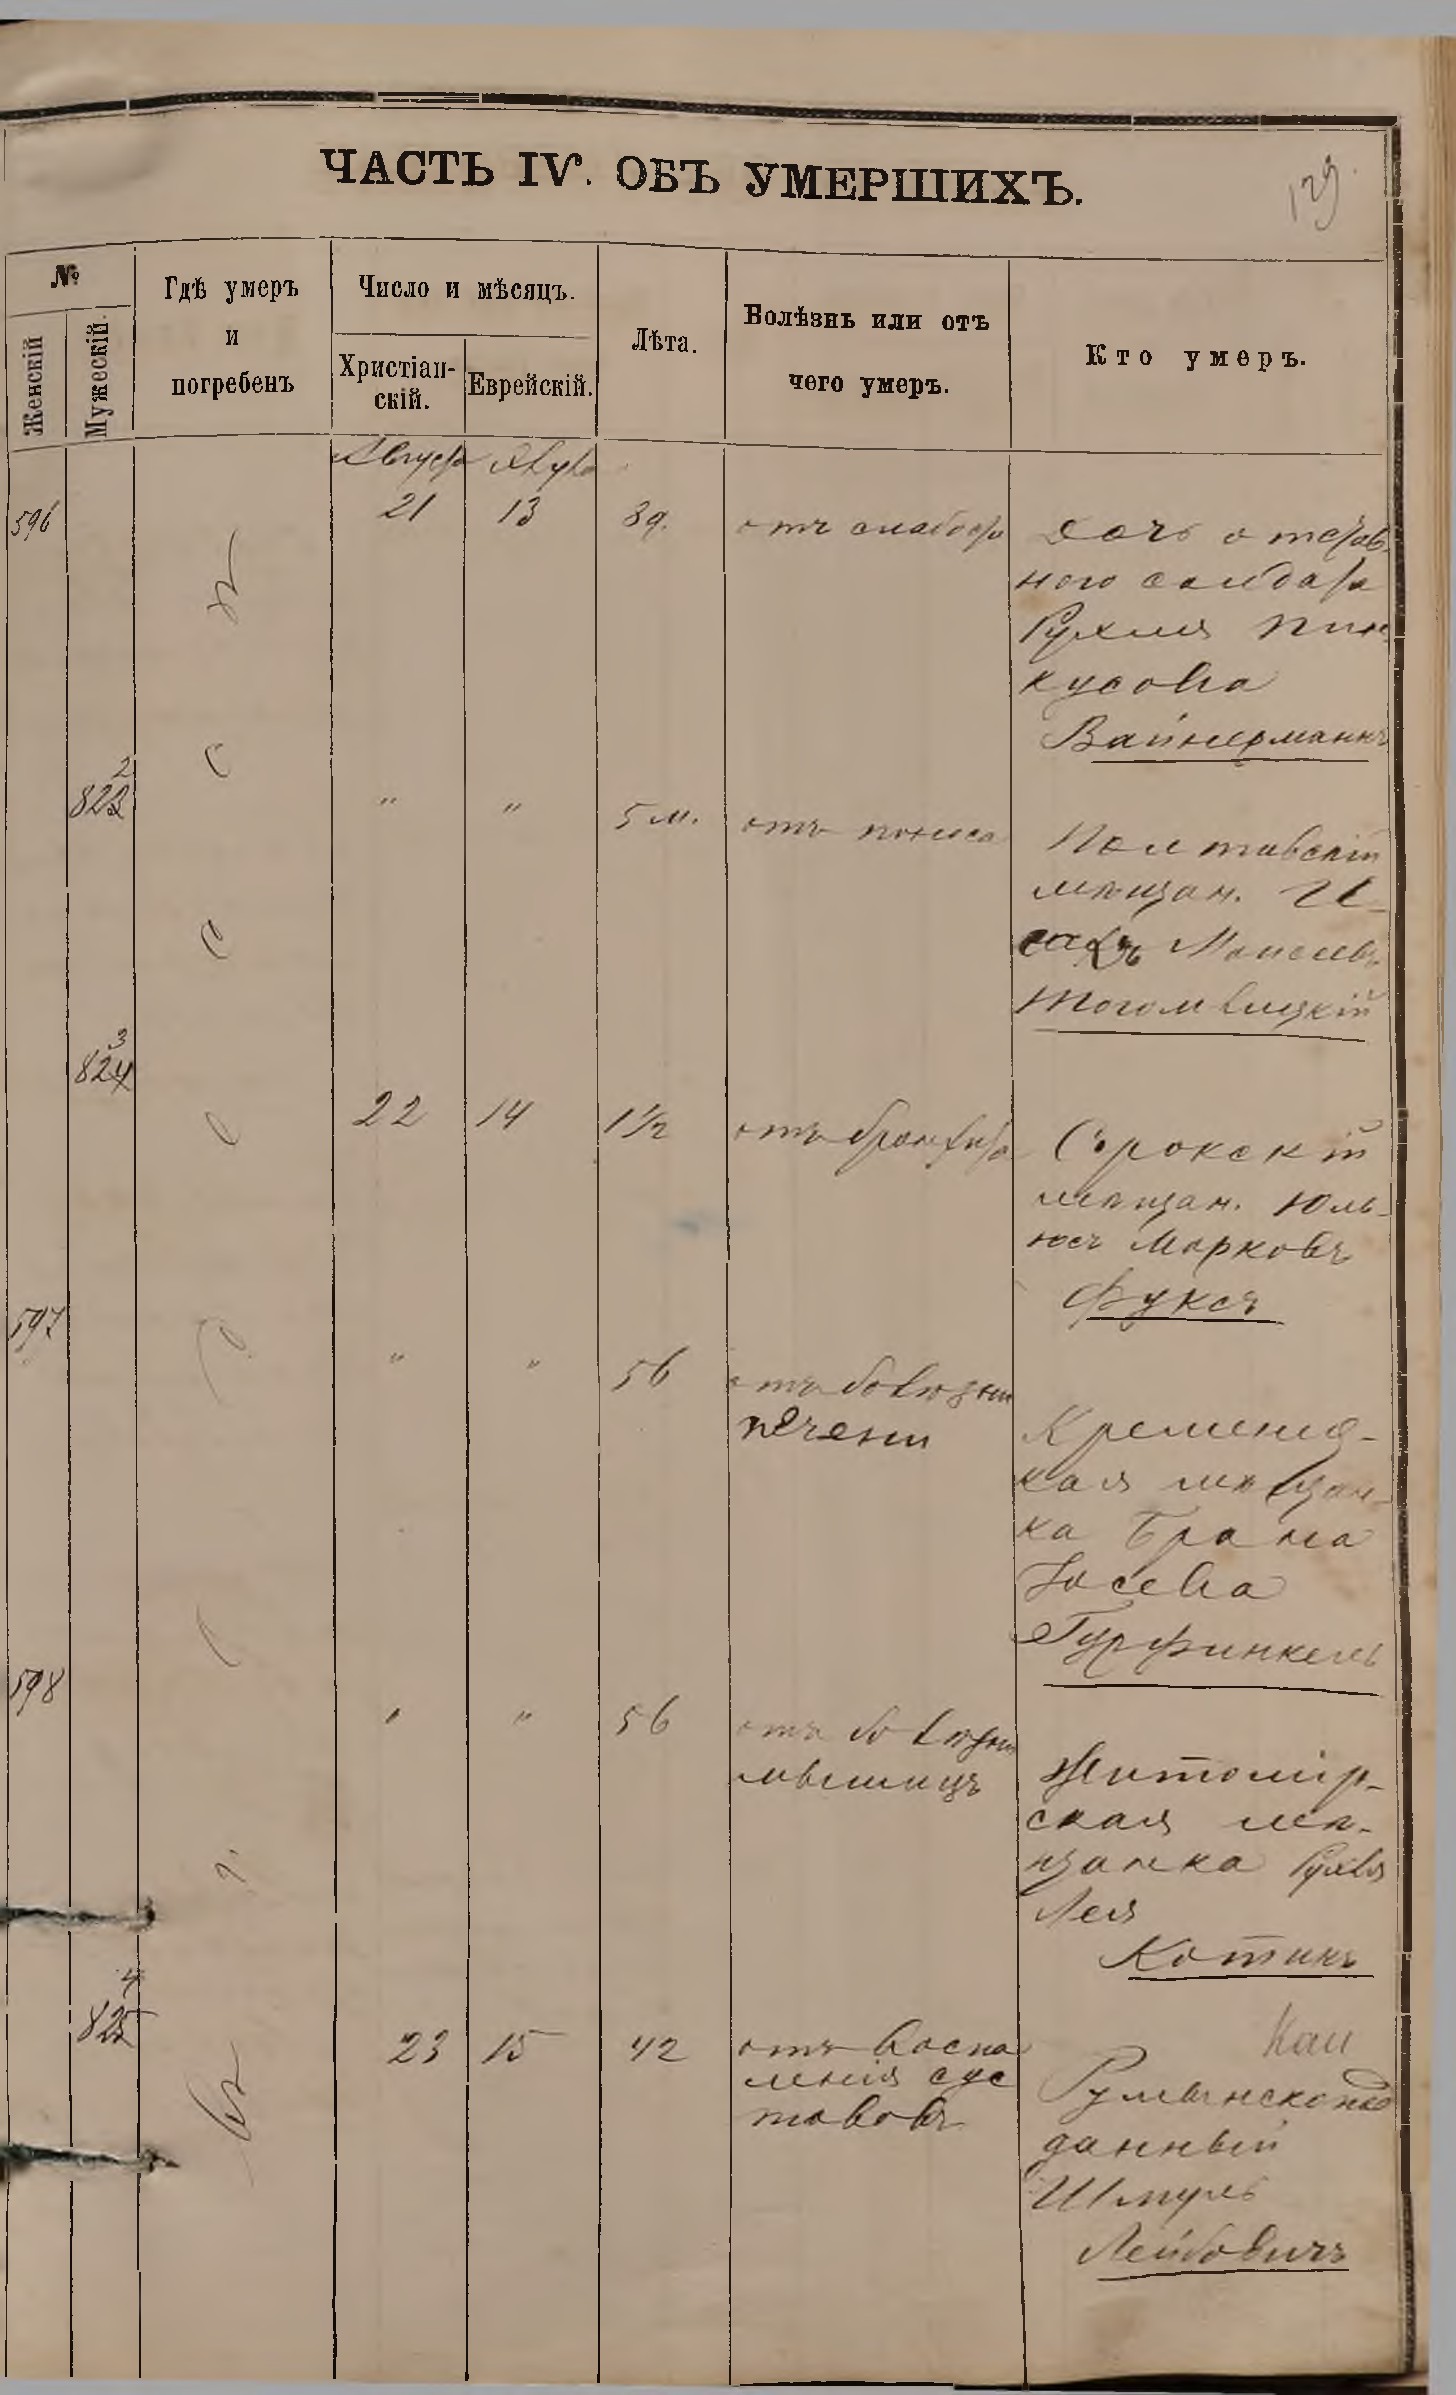 ЧАСТЬ IV. ОБЪ УМЕРШИХЪ.
129.
№
Женскій
Мужескій.
Гдѣ умеръ
и
погребенъ
Число и мѣсяцъ.
Христіан-
скій.
Еврейскій.
Лѣта.
Болѣзнь или отъ
чего умеръ.
Кто умеръ.
Августа
596
21
13
3 д.
отъ слабости
Дочь отстав-
ного солдата
Рухля Пин-
кусова
Вайнерманъ
822
"
"
5 м.
отъ поноса
Полтавскій
мѣщан. И-
саакъ
823
22
14
1½
отъ бронхита
Сорокскій
мѣщан. Юль-
юсъ Марковъ
Фуксъ
597
"
"
56
отъ болѣзни
печени
Кременец-
кая мѣщан-
ка Брана
Іосева
Гурфинкель
598
"
"
56
отъ болѣзни
мышицъ
Житомір-
ская мѣ-
щанка Рухля
Лея
Котикъ
824
23
15
42
отъ воспа
ленія сус
тавовъ
Румынскопод
данный
Шмуль
Лейбовичъ